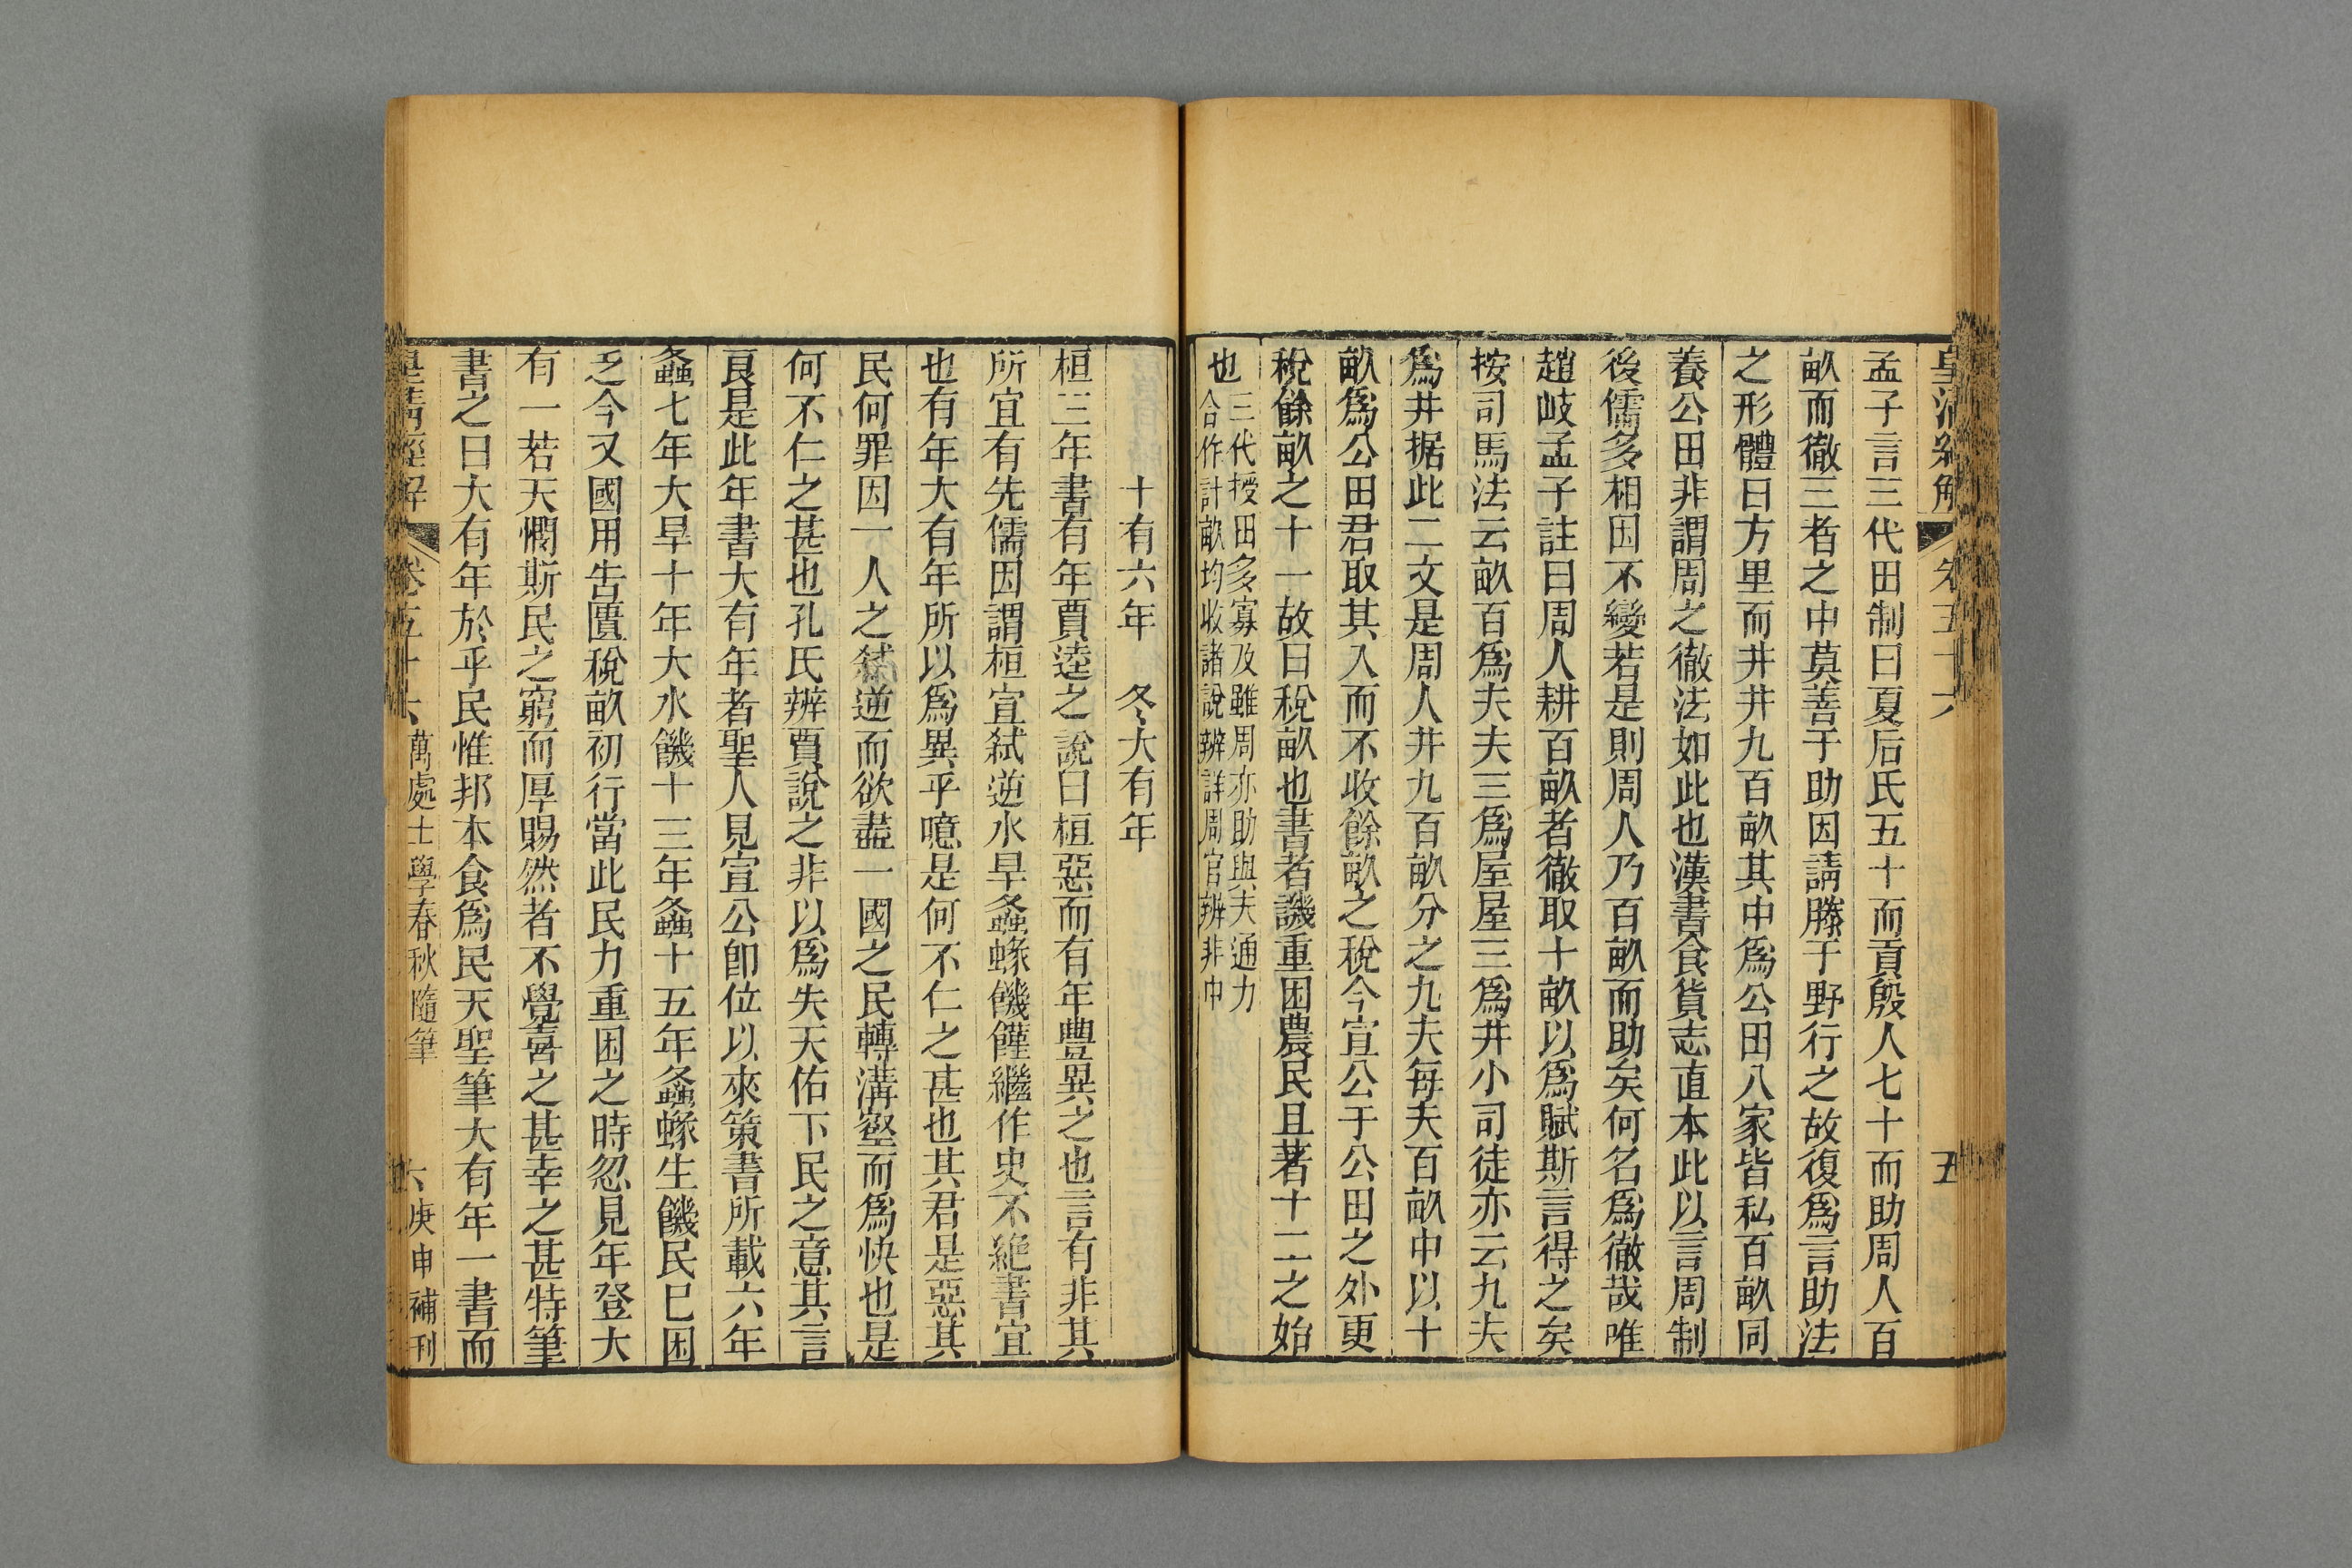 皇清經解
卷五十六
五
孟子言三代田制曰夏后氏五十而貢殷人七十而助周人百
畝而徹三者之中莫善于助因請滕于野行之故復爲言助法
之形體曰方里而井井九百畝其中爲公田八家皆私百畝同
養公田非謂周之徹法如此也漢書食貨志直本此以言周制
後儒多相因不變若是則周人乃百畝而助矣何名爲徹哉唯
趙岐孟子註曰周人耕百畝者徹取十畝以爲賦斯言得之矣
按司馬法云畝百爲夫夫三爲屋屋三爲井小司徒亦云九夫
爲井据此二文是周人井九百畝分之九夫每夫百畝中以十
畝爲公田君取其入而不收餘畝之稅今宣公于公田之外更
稅餘畝之十一故曰稅畝也書者譏重困農民且著十二之始
也
三代授田多寡及雖周亦助與夫通力
合作計畝均收諸說辨詳周官辨非中
十有六年　冬大有年
桓三年書有年賈逵之說曰桓惡而有年豐異之也言有非其
所宜有先儒因謂桓宣弑逆水旱螽蝝饑饉繼作史不絕書宜
也有年大有年所以爲異乎噫是何不仁之甚也其君是惡其
民何罪因一人之弑逆而欲盡一國之民轉溝壑而爲快也是
何不仁之甚也孔氏辨賈說之非以爲失天佑下民之意其言
良是此年書大有年者聖人見宣公卽位以來策書所載六年
螽七年大旱十年大水饑十三年螽十五年螽蝝生饑民已困
乏今又國用告匱稅畝初行當此民力重困之時忽見年登大
有一若天憫斯民之窮而厚賜然者不覺喜之甚幸之甚特筆
書之曰大有年於乎民惟邦本食爲民天聖筆大有年一書而
皇清經解
卷五十六
萬處士學春秋隨筆
六
庚申補刊